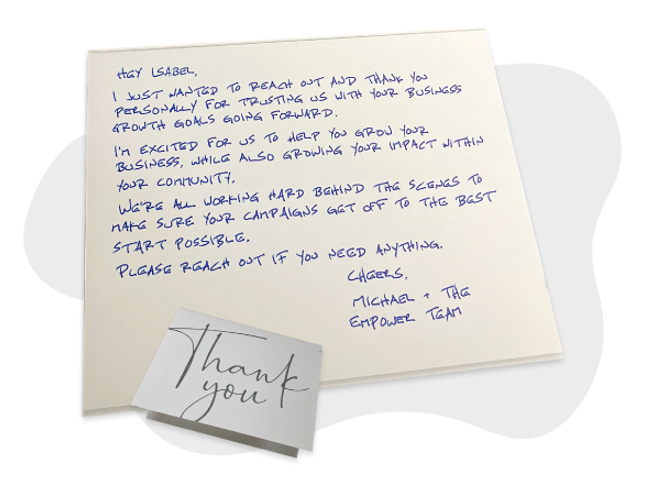 HEY ISABEL,
I JUST WANTED TO REACH OUT AND THANK YOU
PERSONALLY FOR TRUSTING US WITH YOUR BUSINESS
GROWTH GOALS GOING FORWARD.
I'M EXCITED FOR US TO HELP YOU GROW YOUR
BUSINESS, WHILE ALSO GROWING YOUR IMPACT WITHIN
YOUR COMMUNITY.
WE'RE ALL WORKING HARD BEHIND THE SCENES TO
MAKE SURE YOUR CAMPAIGNS GET OFF TO THE BEST
START POSSIBLE.
PLEASE REACH OUT IF YOU NEED ANYTHING.
CHEERS,
MICHAEL + THE
EMPOWER TEAM
Thank
you